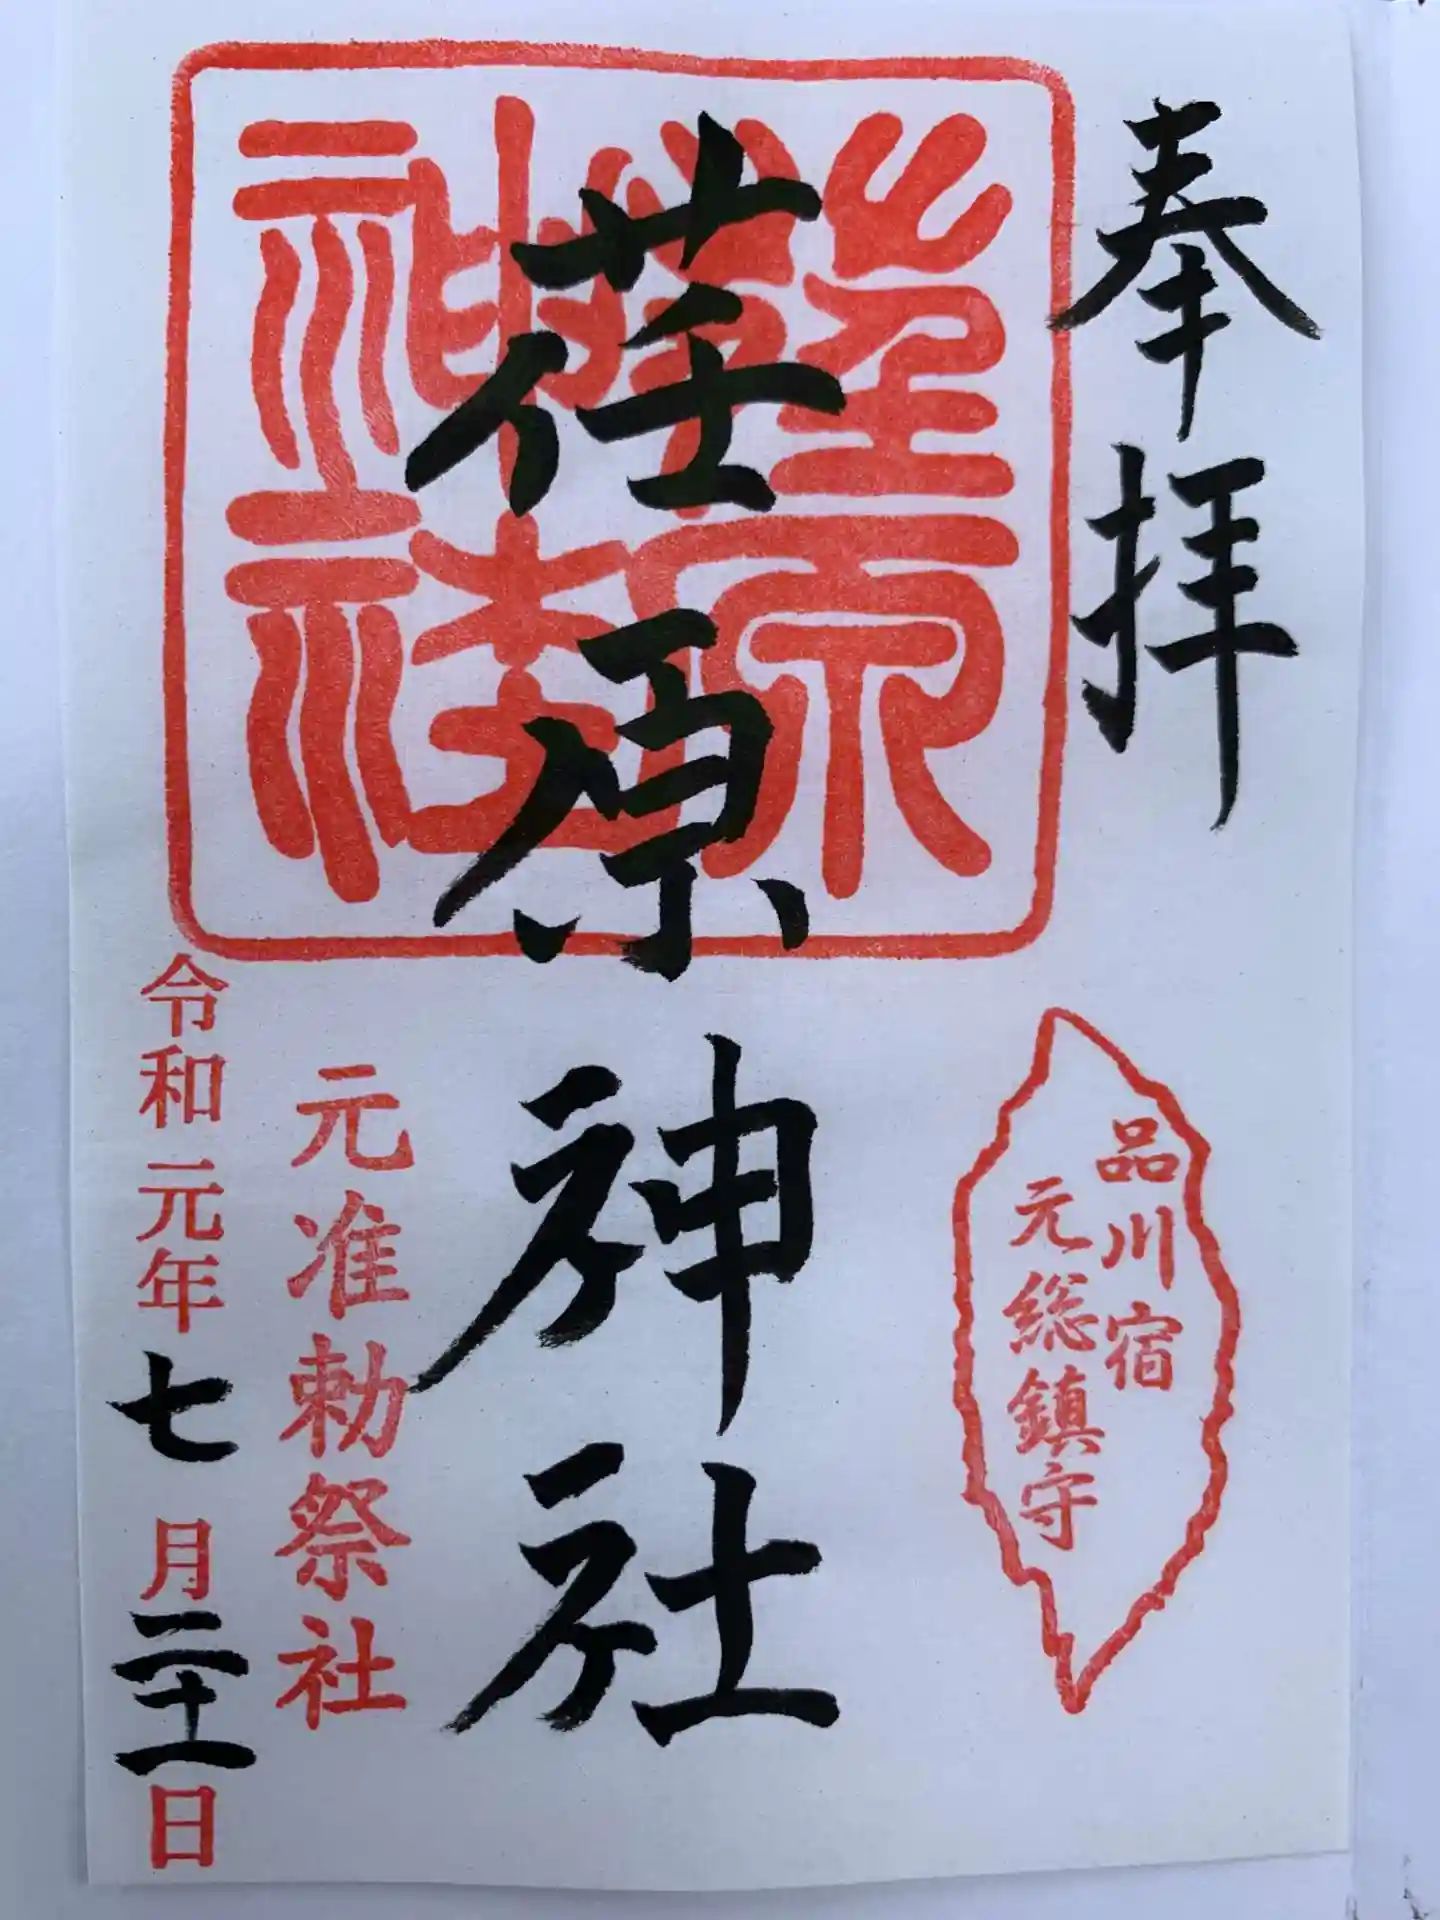 奉拝
品川宿
元総鎮守
荏原神社
荏原
神社
元准勅祭社
令和元年七月二十一日